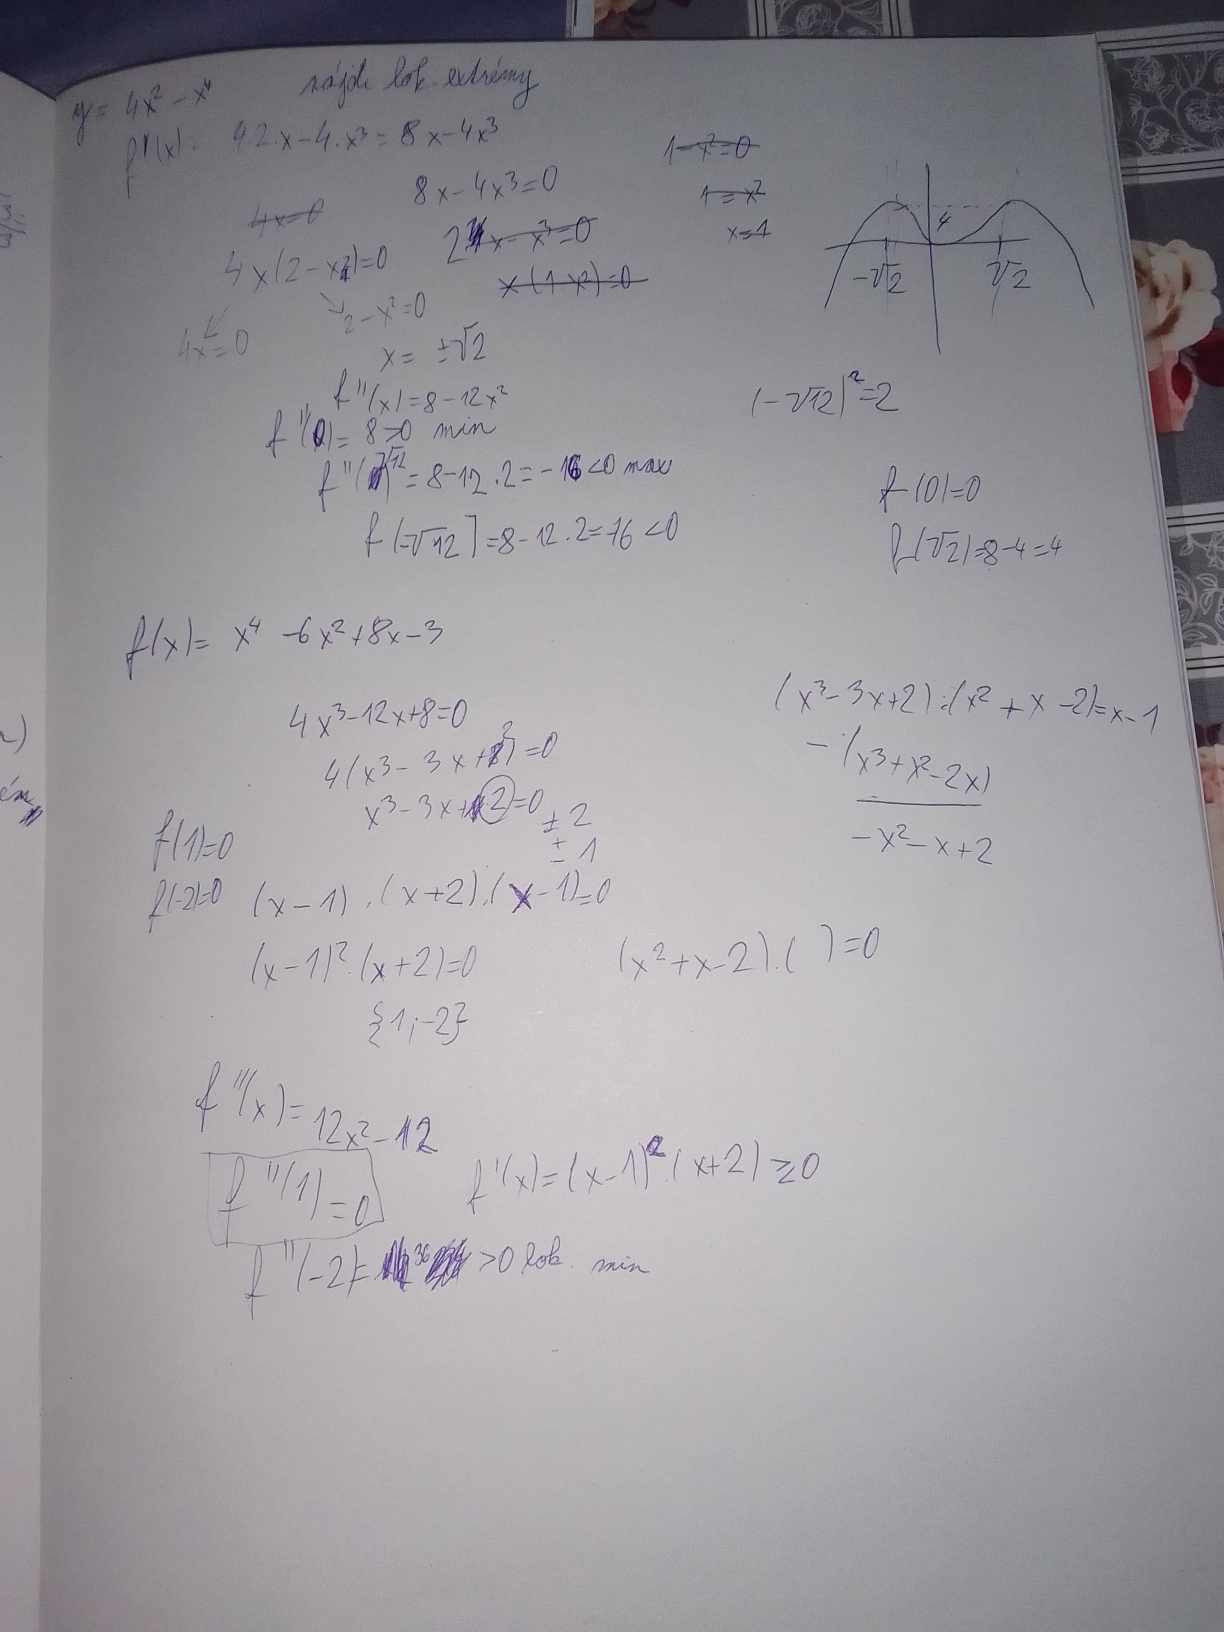 y = 4x² - x⁴ nájdi lok. extrémy
f'(x) = 4.2.x - 4.x³ = 8x - 4x³
8x - 4x³ = 0
1 - x² = 0
1 = x²
x = 1
4x = 0
4x(2 - x²) = 0
x - x³ = 0
x(1 - x²) = 0
4x = 0
2 - x² = 0
x = ±√2
4
-√2 √2
f''(x) = 8 - 12x²
f''(0) = 8 > 0 min
f''(√12) = 8 - 12.2 = -16 < 0 max
f(-√12] = 8 - 12.2 = -16 < 0
(-√12)² = 2
f(0) = 0
f(√2) = 8 - 4 = 4
f(x) = x⁴ - 6x² + 8x - 3
4x³ - 12x + 8 = 0
4(x³ - 3x + 2) = 0
x³ - 3x + 2 = 0
± 2
± 1
f(1) = 0
f(-2) = 0
(x - 1).(x + 2).(x - 1) = 0
(x - 1)².(x + 2) = 0
{1; -2}
(x³ - 3x + 2) : (x² + x - 2) = x - 1
-(x³ + x² - 2x)
-x² - x + 2
(x² + x - 2).( ) = 0
f''(x) = 12x² - 12
f''(1) = 0
f'(x) = (x - 1)².(x + 2) ≥ 0
f''(-2) = 36 > 0 lok. min